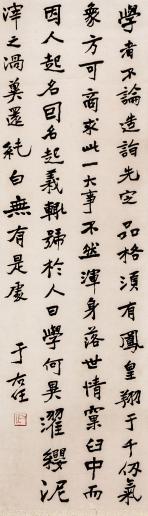 學者不論造詣先定品格須有鳳皇翔于千仞氣
象方可商求此一大事不然渾身落世情窠臼中而
因人起名因名起義輒號於人曰學何異濯纓泥
滓之渦冀還純白無有是處
于右任